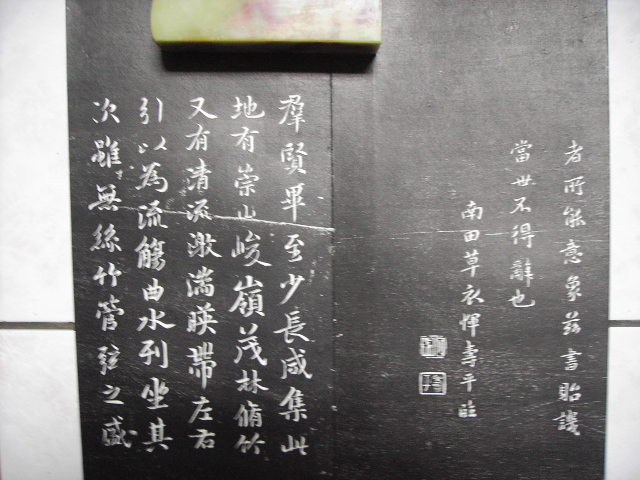 者所能意象茲書貽譏
當世不得辭也
南田草衣惲壽平臨
羣賢畢至少長咸集此
地有崇山峻嶺茂林脩竹
又有清流激湍暎帶左右
引以為流觴曲水列坐其
次雖無絲竹管弦之盛